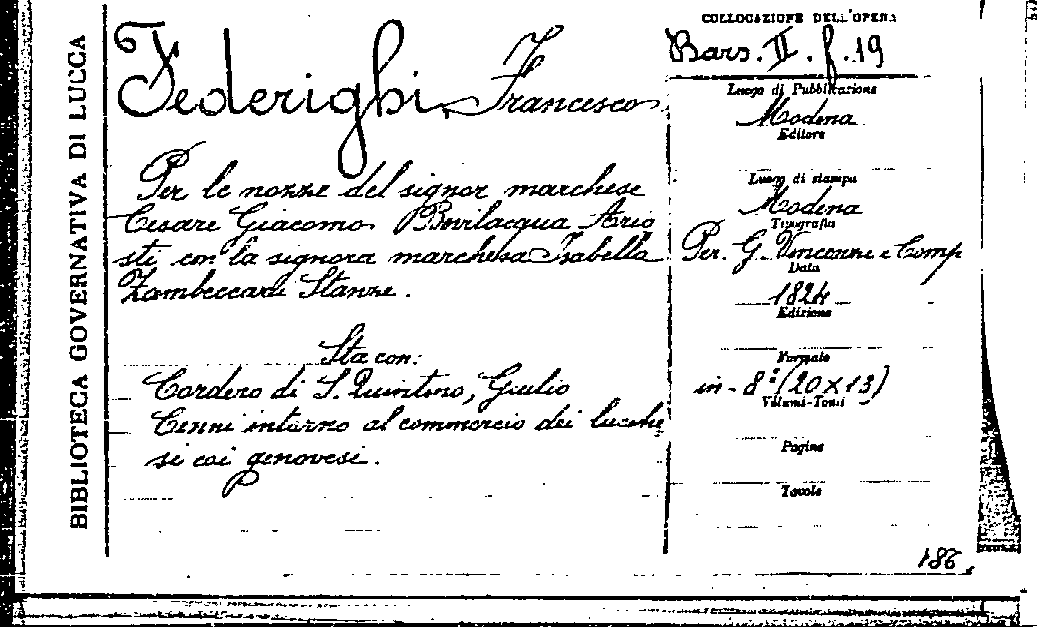 BIBLIOTECA GOVERNATIVA DI LUCCA
Federighi, Francesco
Per le nozze del signor marchese
Cesare Giacomo Bevilacqua Ario
sti con la signora marchesa Isabella
Zambeccari Stanze.
Sta con:
Cordero di S. Quintino, Giulio
Cenni intorno al commercio dei lucche
si coi genovesi.
COLLOCAZIONE DELL'OPERA
Bars. II. f. 19
Luogo di Pubblicazione
Modena
Editore
Luogo di stampa
Modena
Tipografia
Per. G. Vincenzi e Comp
Data
1824
Edizione
Formato
in - 8° (20 x 13)
Volumi-Tomi
Pagine
Tavole
186